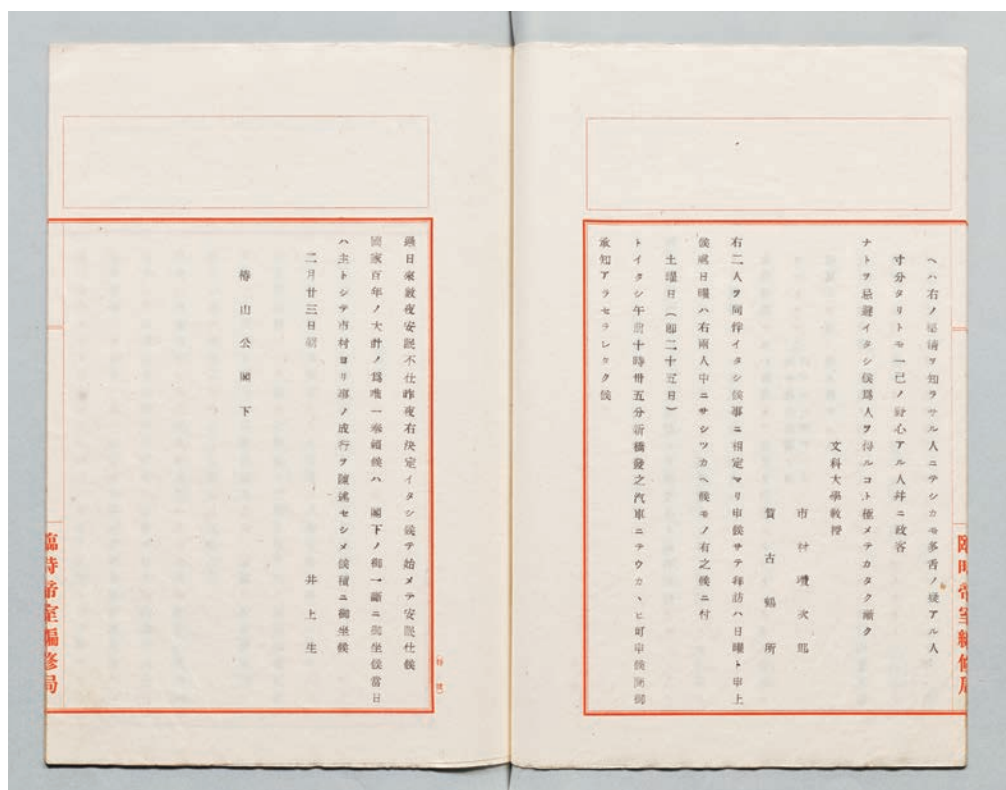 ヘハ右ノ秘請ヲ知ラサル人ニテシカモ多舌ノ嫌アル人
寸分タリトモ一己ノ野心アル人幷ニ政客
ナトヲ忌避イタシ候爲人ヲ得ルコト極メテカタク漸ク
文科大學敎授
市村瓚次郎
賀古鶴所
右二人ヲ同伴イタシ候事ニ相定マリ申候サテ拜訪ハ日曜ト申上
候處日曜ハ右兩人中ニサシツカヘ候モノ有之候ニ付
土曜日(卽二十五日)
トイタシ午前十時卅五分新橋發之汽車ニテウカヽヒ可申候間御
承知アラセラレタク候
臨時帝室編修局
過日來數夜安眠不仕昨夜右決定イタシ候テ始メテ安眠仕候
國家百年ノ大計ノ爲唯一奉願候ハ 閣下ノ御一斷ニ御坐候當日
ハ主トシテ市村ヨリ事ノ成行ヲ陳述セシメ候積ニ御坐候
二月廿三日
井上生
椿山公閣下
臨時帝室編修局